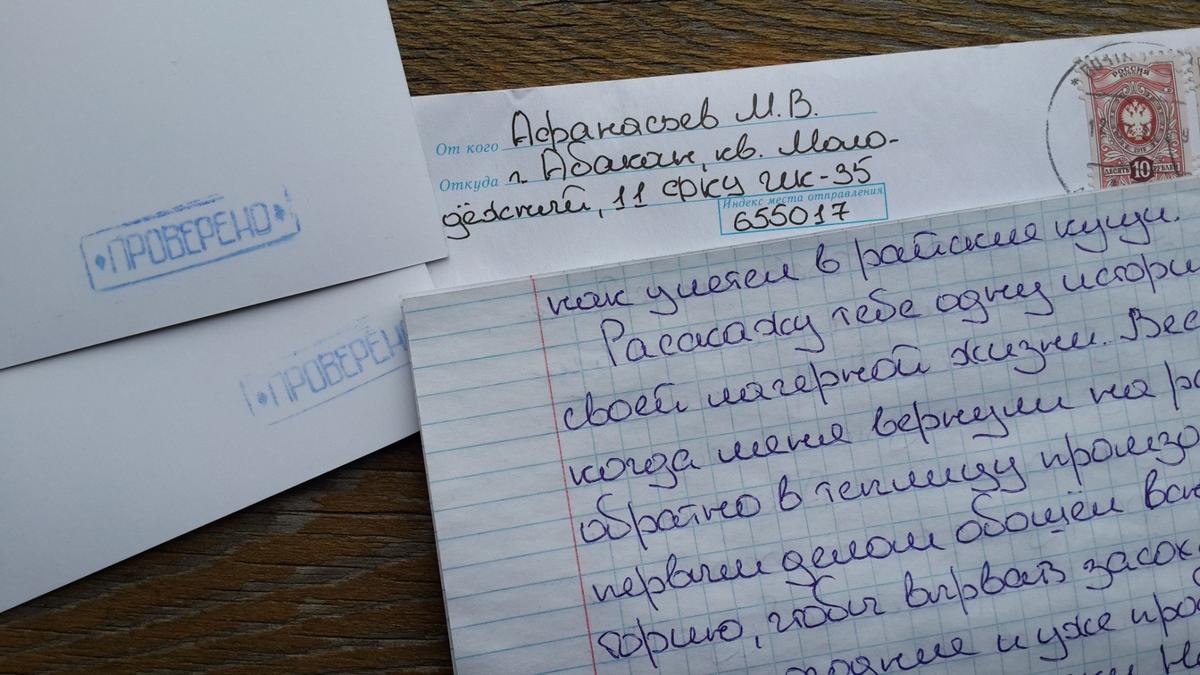 ПРОВЕРЕНО
ПРОВЕРЕН
От кого Афанасьев М.В.
Откуда г. Абакан, кв. Моло-
дёжный, 11 ФКУ ИК-35
Индекс места отправления
655017
РОССИЯ
10
ДЕСЯТЬ РУБЛЕЙ
как улетел в райские кущи.
Расскажу тебе одну истори
своей лагерной жизни. Вес
когда меня вернули на ра
обратно в теплицу промзо
первым делом обошёл
чтобы вырвать засох
и уже про